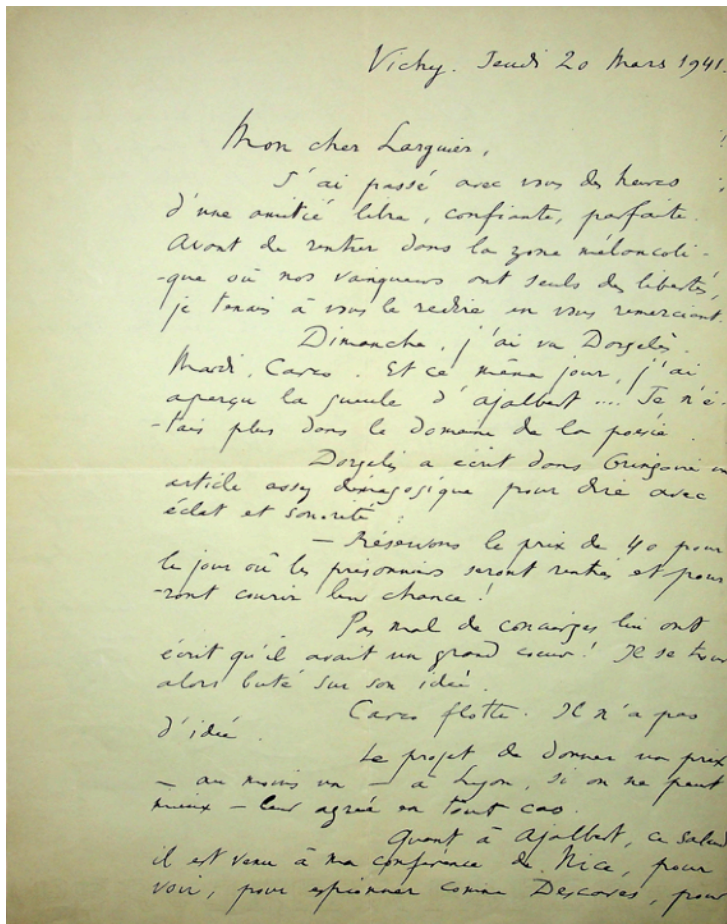 Vichy. Jeudi 20 Mars 1941.
Mon cher Larguier,
J'ai passé avec vous des heures
d'une amitié libre, confiante, parfaite.
Avant de rentrer dans la zone mélancoli-
-que où nos vainqueurs ont seuls des libertés,
je tenais à vous le redire en vous remerciant.
Dimanche, j'ai vu Dorgelès.
Mardi, Carco. Et ce même jour, j'ai
aperçu la gueule d'Ajalbert .... Je n'é-
-tais plus dans le domaine de la poésie.
Dorgelès a écrit dans Gringoire un
article assez démagogique pour dire avec
éclat et sonorité :
— Réservons le prix de 40 pour
le jour où les prisonniers seront rentrés et pour
-ront courir leur chance !
Pas mal de concierges lui ont
écrit qu'il avait un grand coeur ! Il se trouv
alors buté sur son idée.
Carco flotte. Il n'a pas
d'idée.
Le projet de donner un prix
— au moins un — à Lyon, si on ne peut
mieux — leur agrée en tout cas.
Quant à Ajalbert, ce salaud
il est venu à ma conférence de Nice, pour
voir, pour espionner comme Descaves, pour